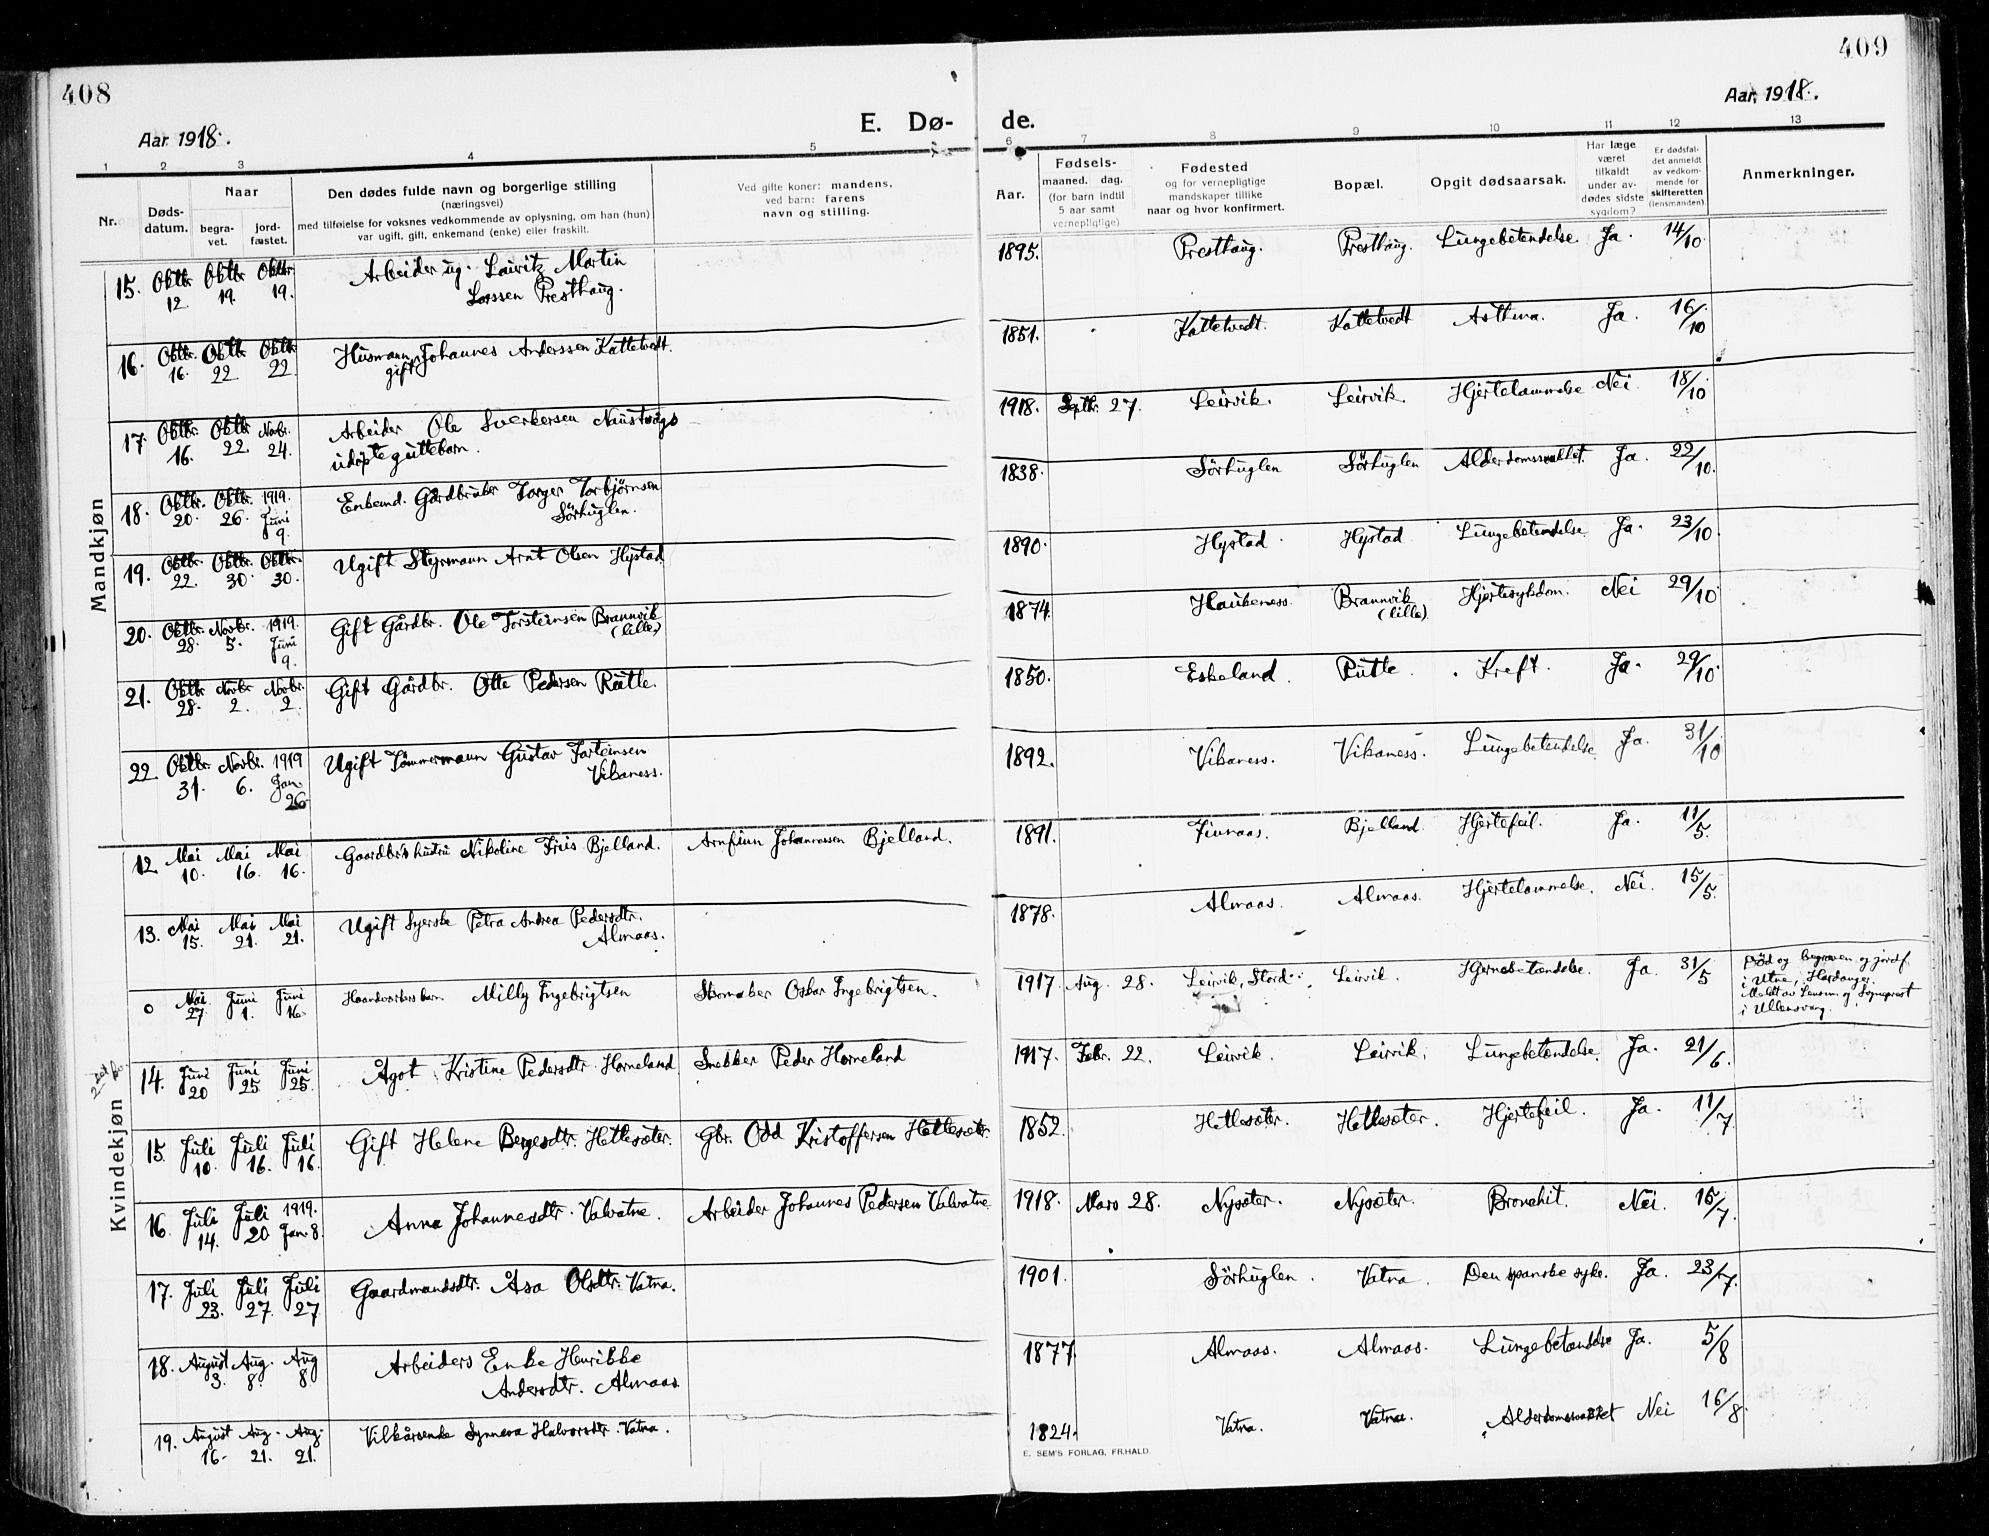 408
409
Aar 1918.
E. Dø-
de.
Aar. 1918.
1 2 3 4 5 6 7 8 9 10 11 12 13
Nr.
Døds-
datum.
Naar
begra-
vet.
jord-
fæstet.
Den dødes fulde navn og borgerlige stilling
(næringsvei)
med tilføielse for voksnes vedkommende av oplysning, om han (hun)
var ugift, gift, enkemand (enke) eller fraskilt.
Ved gifte koner: mandens,
ved barn: farens
navn og stilling.
Aar.
Fødsels-
maaned. dag.
(for barn indtil
5 aar samt
vernepligtige)
Fødested
og for vernepligtige
mandskaper tillike
naar og hvor konfirmert.
Bopæl.
Opgit dødsaarsak.
Har læge
været
tilkaldt
under av-
dødes sidste
sygdom?
Er dødsfal-
det anmeldt
av vedkom-
mende for
skifteretten
(lensmanden).
Anmerkninger.
Mandkjøn
15. Oktbr. 12. Oktbr. 19. Oktbr. 19. Arbeider ug. Lauritz Martin
Larssen Presthaug. 1895. Presthaug. Presthaug. Lungebetendelse. Ja. 14/10.
16. Oktbr. 16. Oktbr. 22. Oktbr. 22. Husmann Johannes Anderssen Kattetvedt.
gift 1851. Kattetvedt. Kattetvedt Asthma. Ja. 16/10
17. Oktbr. 16. Oktbr. 22. Novbr. 24. Arbeider Ole Sverkersen Naustvågs
udøpte guttebarn. 1918. Septbr. 27. Leirvik. Leirvik. Hjertelammelse Nei. 18/10
18. Oktbr. 20. Oktbr. 26. 1919. Juni 9. Enkemd. Gårdbruker Torger Torbjørnsen
Sörhuglen. 1838. Sörhuglen Sörhuglen Alderdomssvakhet. Ja. 22/10.
19. Oktbr. 22. Oktbr. 30. Oktbr. 30. Ugift Styrmann Arnt Olsen Hystad 1890. Hystad. Hystad Lungebetendelse. Ja. 23/10.
20. Oktbr. 28. Novbr. 5. 1919. Juni 9. Gift Gårdbr. Ole Torsteinsen Brannvik
(lille) 1874. Haukeness. Brannvik (lille). Hjertesykdom. Nei 29/10.
21. Oktbr. 28. Novbr. 2. Novbr. 2. Gift Gårdbr. Otte Pedersen Rutle. 1850. Eskeland. Rutle. Kreft. Ja. 29/10.
22. Oktbr. 31. Novbr. 6. 1919 Jan. 26. Ugift Tömmermann Gustav Torteinsen
Vikaness. 1892. Vikaness. Vikaness. Lungebetendelse Ja. 31/10
Kvindekjøn
12. Mai 10. Mai 16. Mai 16. Gaardbr's hustru Nikoline Friis Bjelland. Arnfinn Johannessen Bjelland. 1891. Tivnaas. Bjelland. Hjertefeil. Ja. 11/5.
13. Mai 15. Mai 21. Mai 21. Ugift Syerske Petra Andrea Pedersdtr.
Almaas. 1878. Almaas. Almaas. Hjertelammelse. Nei. 15/5.
0 Mai 27. Juni 1. Juni 16. Haandverkers barn Milly Ingebrigtsen Skomaker Oskar Ingebrigtsen. 1917. Aug. 28. Leirvik, Stord. Leirvik. Hjernebetændelse. Ja. 31/5 Död og begraven og jordf.
i Utne, Hardanger.
Meldt av Lensm. og Sogneprest
i Ullensvang.
14. Juni 20 Juni 25 Juni 25. Agot Kristine Pedersdtr. Horneland Snekker Peder Horneland 1917. Febr. 22. Leirvik. Leirvik. Lungebetændelse. Ja. 21/6.
15. Juli 10. Juli 16. Juli 16. Gift Helene Bergesdtr. Hetlesæter. Gbr. Odd Kristoffersen Hetlesæter. 1852. Hetlesæter. Hetlesæter. Hjertefeil. Ja. 11/7.
16. Juli 14. Juli 20 1919. Jan. 8. Anna Johannesdtr. Valvatne. Arbeider Johannes Pedersen Valvatne 1918. Mars 28. Nysæter. Nysæter. Bronchit. Nei. 15/7.
17. Juli 23. Juli 27. Juli 27 Gaardmandsdtr. Åsa Olsdtr. Vatna. 1901. Sörhuglen. Vatna. Den spanske syke. Ja. 23/7.
18. August 3. Aug. 8. Aug 8. Arbeiders Enke Henrikke
Andersdtr. Almaas 1877. Almaas. Almaas. Lungebetændelse Ja. 5/8
19. August 16. Aug. 21. Aug. 21. Vilkårsenke Synneva Halvorsdtr. Vatna. 1824. Vatna. Vatna. Alderdomssvakhet Nei 16/8.
E. SEM'S FORLAG, FR.HALD.